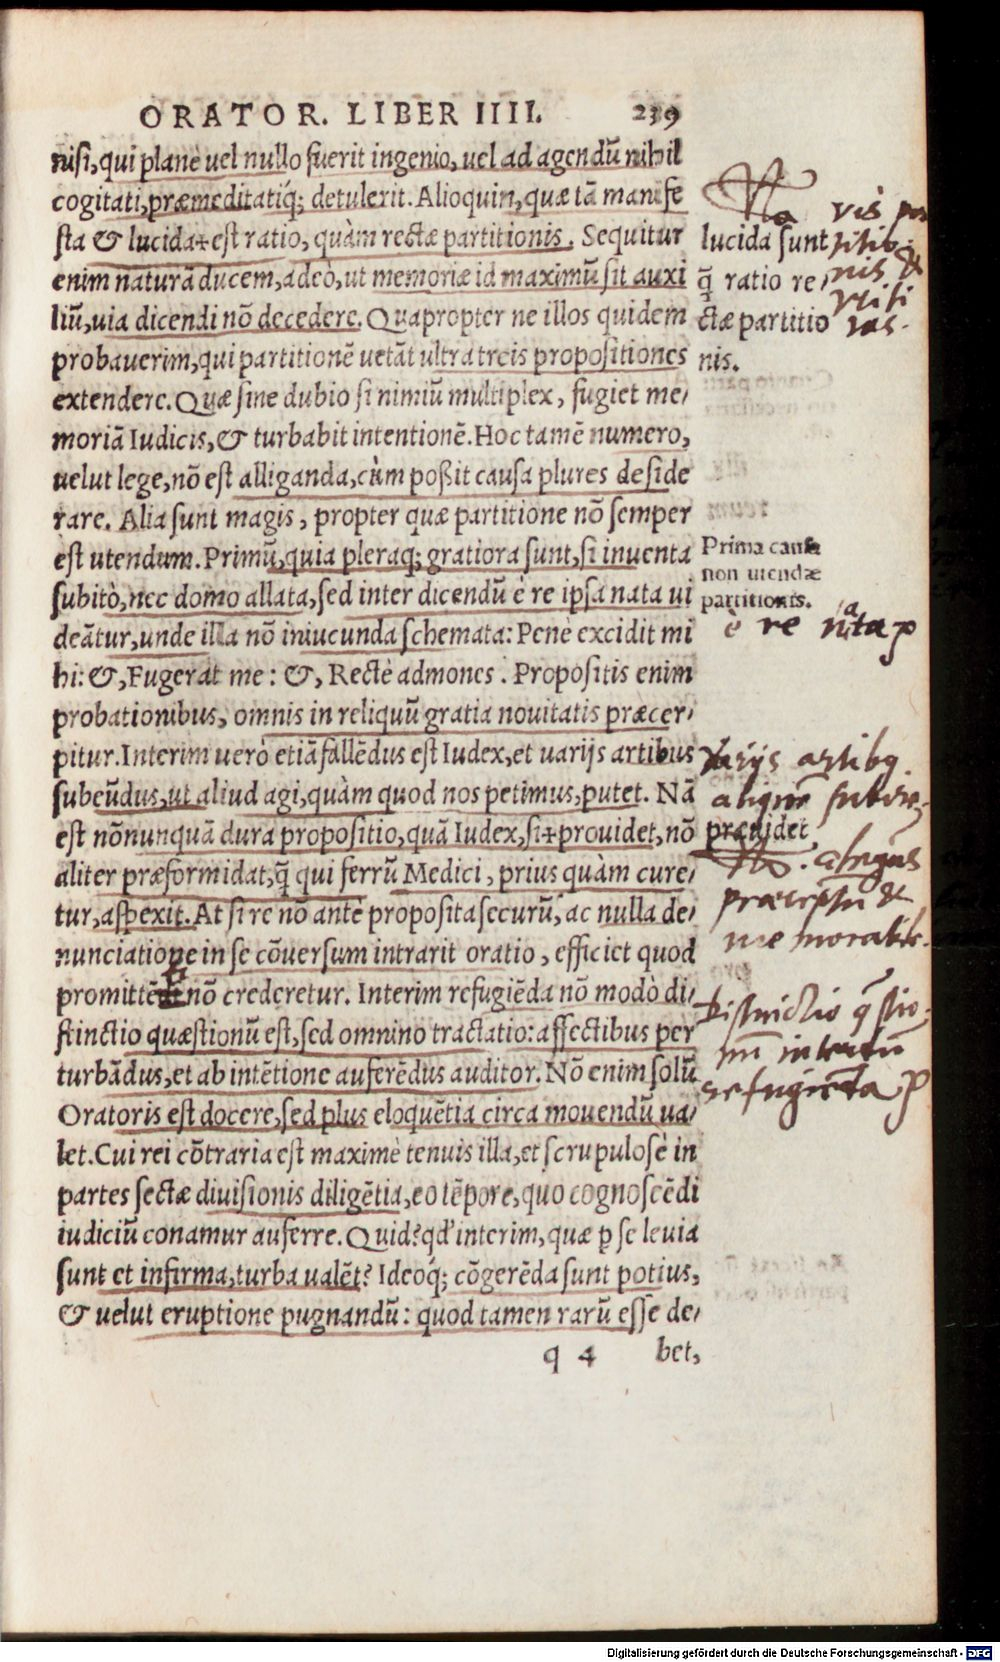 ORATOR. LIBER IIII. 239
nisi, qui planè vel nullo fuerit ingenio, vel ad agendū nihil
cogitati, præmeditatiq́; detulerit. Alioquin, quæ tā manife
sta & lucida + est ratio, quàm rectæ partitionis. Sequitur
enim naturā ducem, adeò, ut memoriæ id maximū sit auxi
liū, uia dicendi nō decedere. Quapropter ne illos quidem
probauerim, qui partitionē uetāt ultra treis propositiones
extendere. Quæ sine dubio si nimiū multiplex, fugiet me/
moriā Iudicis, & turbabit intentionē. Hoc tamē numero,
uelut lege, nō est alliganda, cùm poßit causa plures deside
rare. Alia sunt magis, propter quæ partitione nō semper
est utendum. Primū, quia pleraq; gratiora sunt, si inuenta
subitò, nec domo allata, sed inter dicendū è re ipsa nata ui
deātur, unde illa nō iniucunda schemata: Penè excidit mi
hi: &, Fugerat me: &, Rectè admones. Propositis enim
probationibus, omnis in reliquū gratia nouitatis præcer/
pitur. Interim uerò etiā fallēdus est Iudex, et varijs artibus
subeūdus, ut aliud agi, quàm quod nos petimus, putet. Nā
est nōnunquā dura propositio, quā Iudex, si + prouidet, nō
aliter præformidat, q̄ qui ferrū Medici, prius quàm cure/
tur, aspexit. At si re nō antè proposita securū, ac nulla de/
nunciatione in se cōuersum intrarit oratio, efficiet quod
promittē nō crederetur. Interim refugiēda nō modò di/
stinctio quæstionū est, sed omnino tractatio: affectibus per
turbādus, et ab intētione auferēdus auditor. Nō enim solū
Oratoris est docere, sed plus eloquētia circa mouendū ua/
let. Cui rei cōtraria est maximè tenuis illa, et scrupulosè in
partes sectæ diuisionis diligētia, eo tēpore, quo cognoscēdi
iudiciū conamur auferre. Quid? qd' interim, quæ p se leuia
sunt et infirma, turba ualēt? Ideoq́; cōgerēda sunt potius,
& uelut eruptione pugnandū: quod tamen rarū esse de/
q 4 bet,
lucida sunt
q̄ ratio re/
ctæ partitio
nis.
vis
utili
tas.
Prima causa
non utendæ
partitionis.
è re nata
Varijs artibq
aliquē subire
præuidet
præceptū &
memorabile.
Distinctio
refugienda